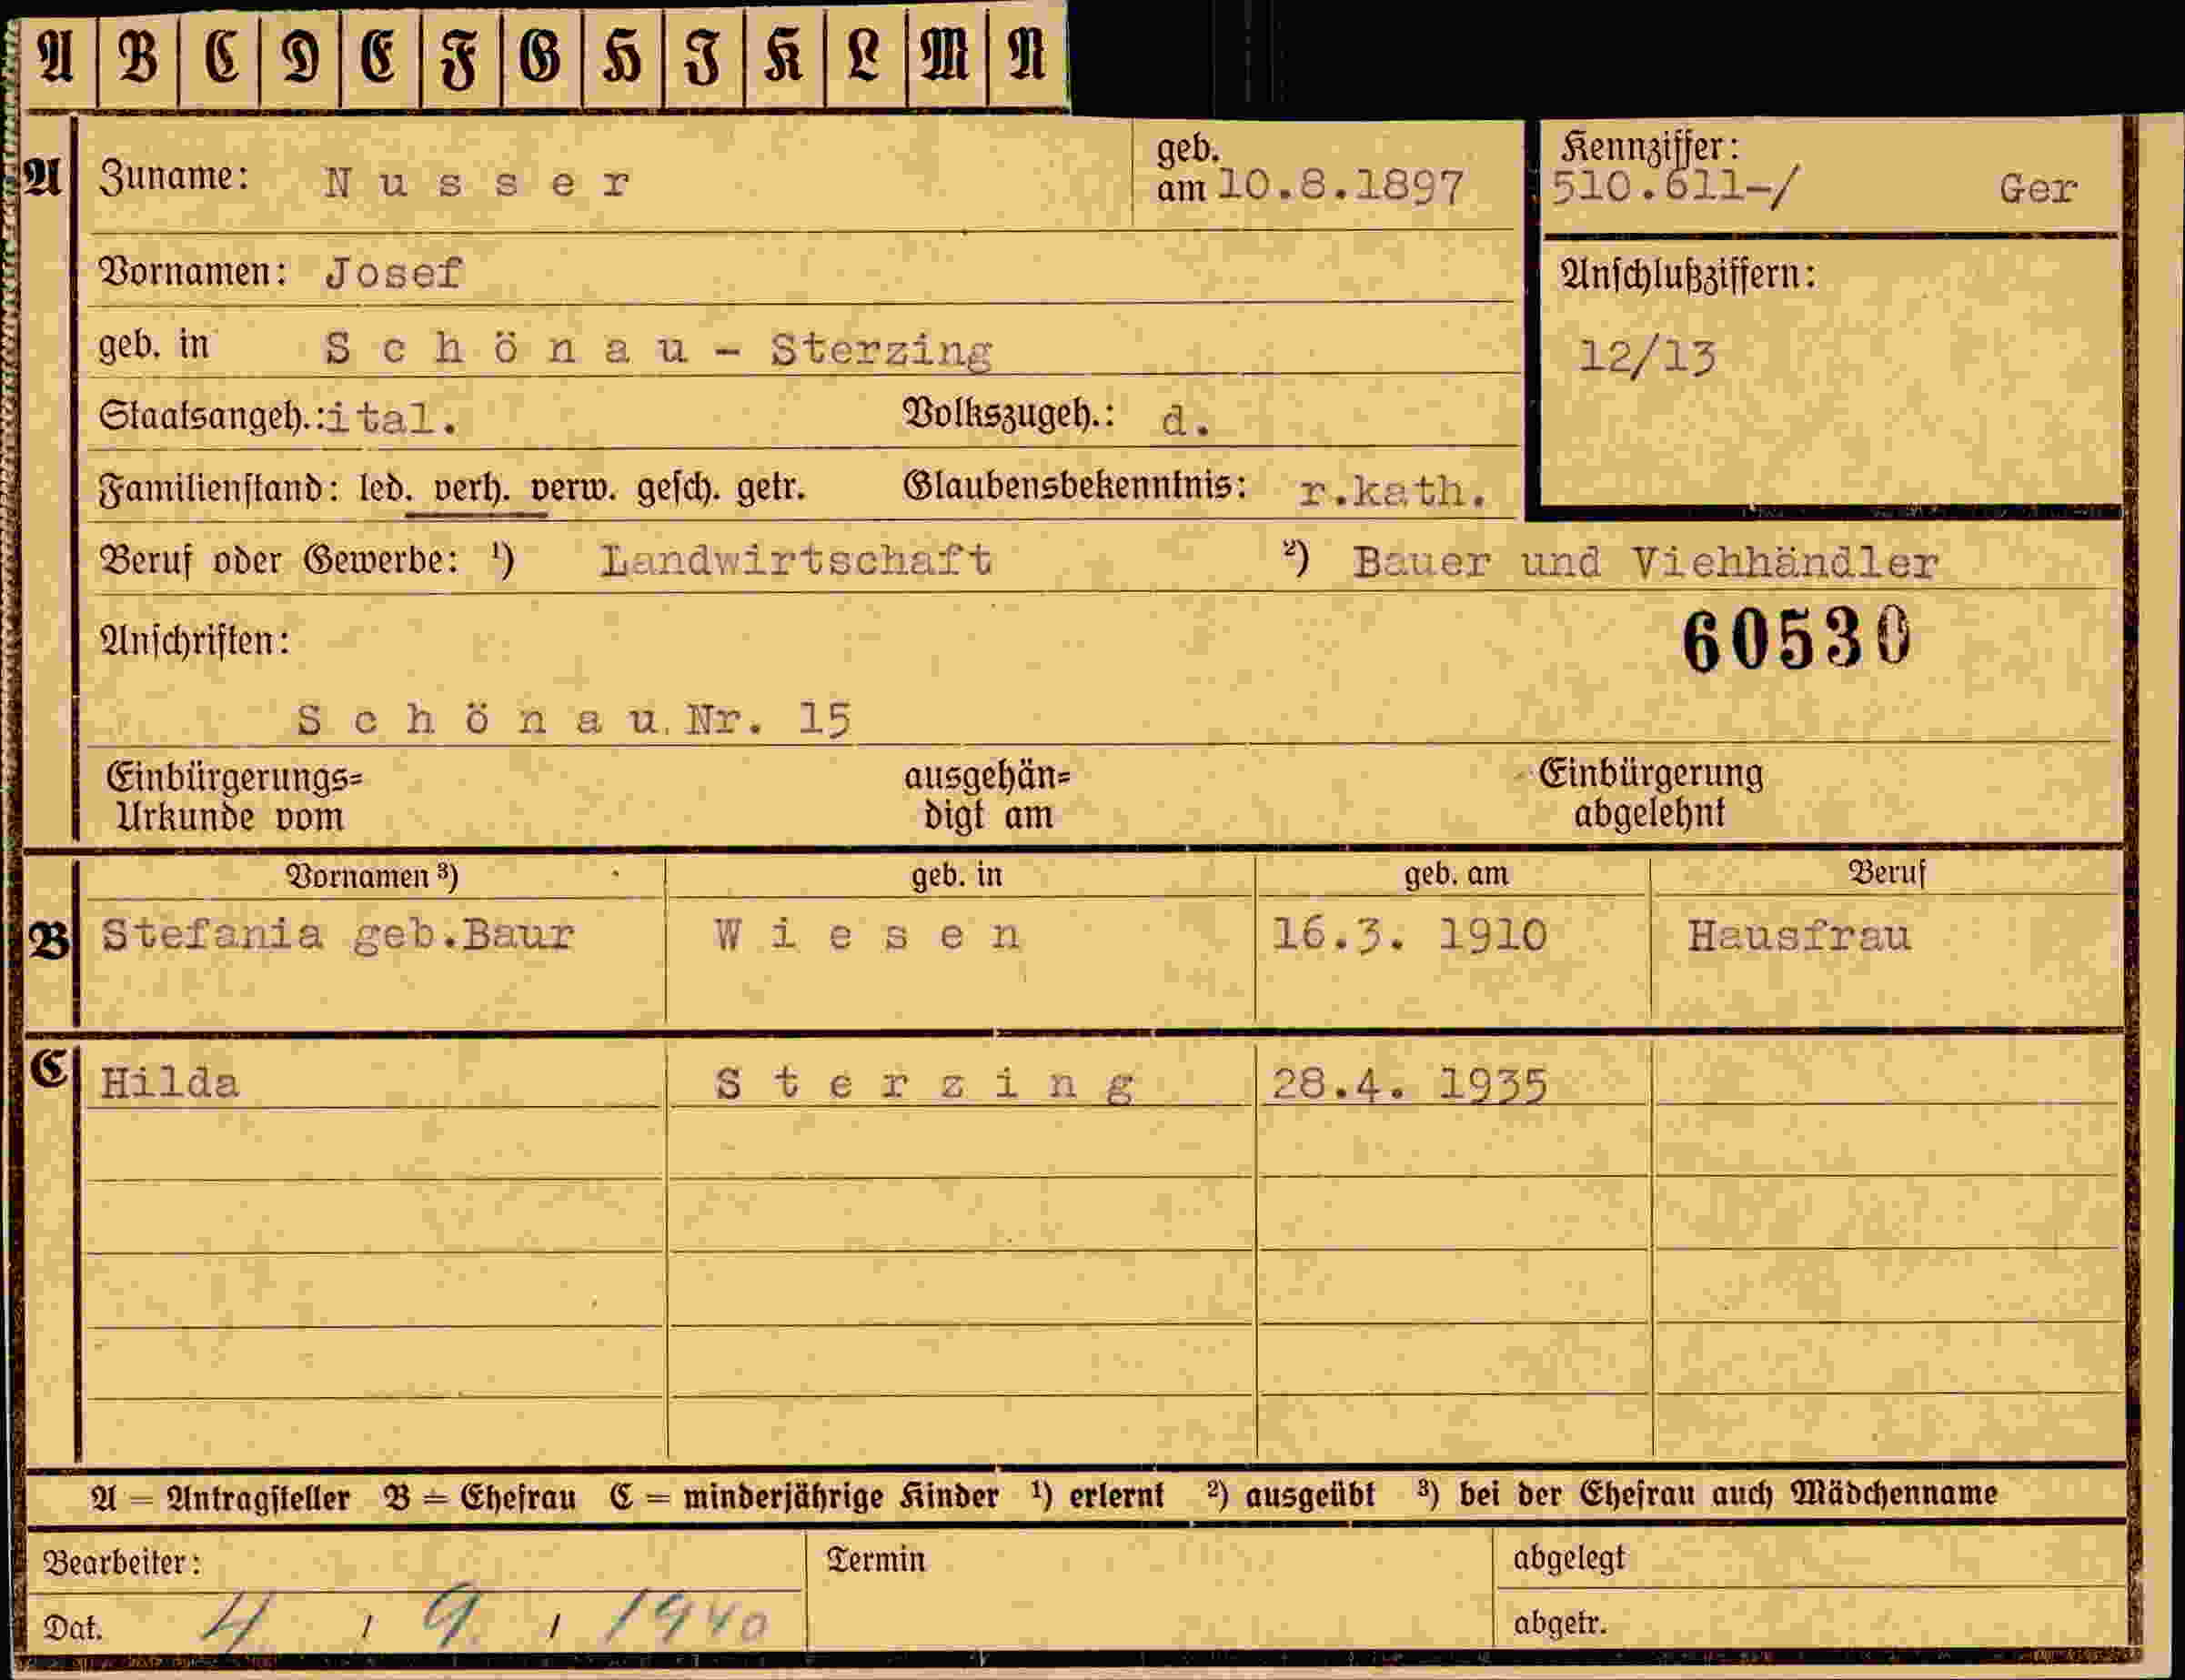 A B C D E F G H I K L M N
A Zuname: Nusser geb. am 10.8.1897 Kennziffer: 510.611-/ Ger
Vornamen: Josef Anschlußziffern:
geb. in Schönau - Sterzing 12/13
Staatsangeh.: ital. Volkszugeh.: d.
Familienstand: led. verh. verw. gesch. getr. Glaubensbekenntnis: r.kath.
Beruf oder Gewerbe: ¹) Landwirtschaft ²) Bauer und Viehhändler
Anschriften: 60530
Schönau Nr. 15
Einbürgerungs= ausgehän= Einbürgerung
Urkunde vom digt am abgelehnt
Vornamen ³) geb. in geb. am Beruf
B Stefania geb.Baur Wiesen 16.3. 1910 Hausfrau
C Hilda Sterzing 28.4. 1935
A = Antragsteller B = Ehefrau C = minderjährige Kinder ¹) erlernt ²) ausgeübt ³) bei der Ehefrau auch Mädchenname
Bearbeiter: Termin abgelegt
Dat. 4 / 9. / 1940 abgetr.